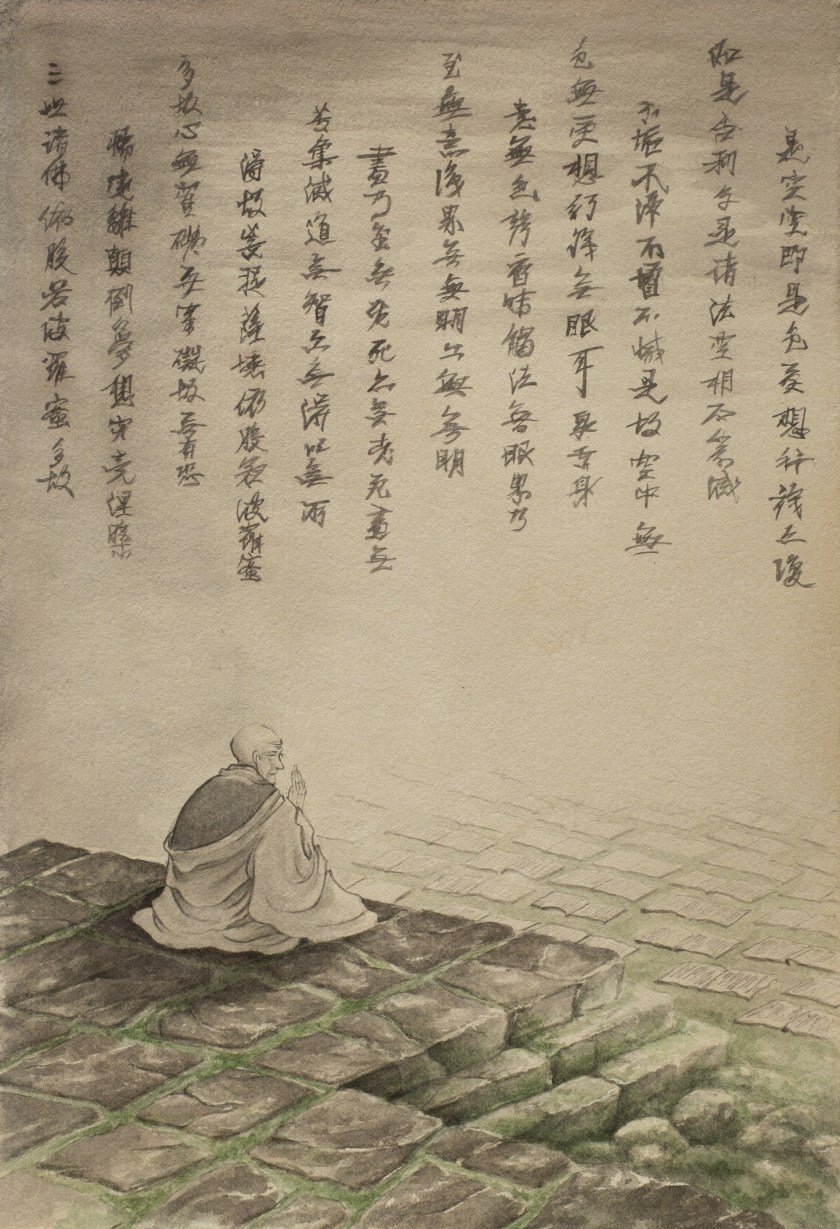 是空空即是色受想行識亦復
如是舍利子是諸法空相不滅
不垢不淨不增不減是故空中無
色無受想行識無眼耳鼻舌身
意無色聲香味觸法無眼界乃
至無意識界無無明亦無無明
盡乃至無老死亦無老死盡無
苦集滅道無智亦無得以無所
得故菩提薩埵依般若波羅蜜
多故心無罣礙無罣礙故無有恐
怖遠離顛倒夢想究竟涅槃
三世諸佛依般若波羅蜜多故